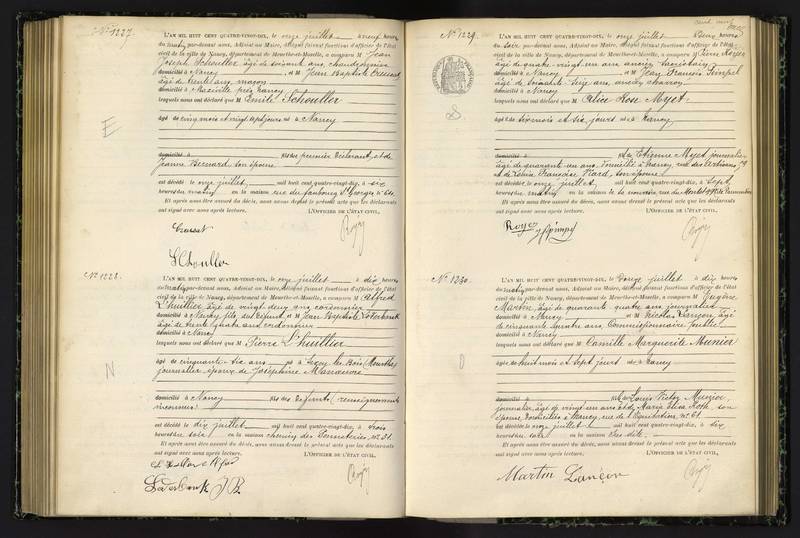 N° 1227
L'AN MIL HUIT CENT QUATRE-VINGT-DIX, le onze juillet à neuf heures
du matin par-devant nous, Adjoint au Maire, délégué faisant fonctions d'officier de l'état
civil de la ville de Nancy, département de Meurthe-et-Moselle, a comparu M Jean
Joseph Schouller âgé de soixante ans,
domicilié à Nancy et M Jean Baptiste
âgé de trente ans, maçon
domicilié à Maxéville près Nancy
lesquels nous ont déclaré que M Emile Schouller
E
âgé de cinq mois et vingt sept jours né à Nancy
domicilié à fils du premier déclarant, et de
Jeanne Bernard son épouse
est décédé le onze juillet mil huit cent quatre-vingt-dix, à six
heures du matin en la maison rue du faubourg St Georges n°
Et après nous être assuré du décès, nous avons dressé le présent acte que les déclarants
ont signé avec nous après lecture. L'OFFICIER DE L'ÉTAT CIVIL,
Schouller
N° 1228
L'AN MIL HUIT CENT QUATRE-VINGT-DIX, le onze juillet à dix heures
du matin par-devant nous, Adjoint au Maire, délégué faisant fonctions d'officier de l'état
civil de la ville de Nancy, département de Meurthe-et-Moselle, a comparu M Alfred
L'huillier âgé de vingt-deux ans, cordonnier
domicilié à Nancy, fils du défunt et M Jean Baptiste
âgé de trente quatre ans cordonnier
domicilié à Nancy
lesquels nous ont déclaré que M Pierre L'huillier
âgé de cinquante-six ans né à (Meurthe)
N
journalier époux de Joséphine
domicilié à Nancy fils des défunts (renseignements
inconnus)
est décédé le dix juillet mil huit cent quatre-vingt-dix, à trois
heures du soir en la maison chemin des
Et après nous être assuré du décès, nous avons dressé le présent acte que les déclarants
ont signé avec nous après lecture. L'OFFICIER DE L'ÉTAT CIVIL,
N° 1229
L'AN MIL HUIT CENT QUATRE-VINGT-DIX, le onze juillet à deux heures
du soir par-devant nous, Adjoint au Maire, délégué faisant fonctions d'officier de l'état
civil de la ville de Nancy, département de Meurthe-et-Moselle, a comparu M Pierre Royer
âgé de quatre-vingt-un ans ancien
domicilié à Nancy et M Jean François
âgé de soixante-dix ans, ancien charron
domicilié à Nancy
lesquels nous ont déclaré que M Alice Rose Myet
S
âgée de six mois et six jours née à Nancy
domicilié à fille de Etienne Myet journalier
âgé de quarante un ans, domicilié à Nancy, rue des
et de Françoise son épouse
est décédé le onze juillet mil huit cent quatre-vingt-dix, à sept
heures du matin en la maison
Et après nous être assuré du décès, nous avons dressé le présent acte que les déclarants
ont signé avec nous après lecture. L'OFFICIER DE L'ÉTAT CIVIL,
Royer
N° 1230
L'AN MIL HUIT CENT QUATRE-VINGT-DIX, le douze juillet à dix heures
du matin par-devant nous, Adjoint au Maire, délégué faisant fonctions d'officier de l'état
civil de la ville de Nancy, département de Meurthe-et-Moselle, a comparu M Eugène
Martin, âgé de quarante-quatre ans journalier
domicilié à Nancy et M Nicolas Lançon âgé
de cinquante quatre ans, Commissionnaire public
domicilié à Nancy
lesquels nous ont déclaré que M Camille Marguerite Munier
âgée de huit mois et sept jours née à Nancy
domicilié à fille de Louis Victor Munier,
journalier, âgé de vingt-un ans et de Maria Elisa Roth son
épouse, domiciliés à Nancy, rue de l'Equitation, n° 61
est décédé le onze juillet mil huit cent quatre-vingt-dix, à dix
heures du soir en la maison sus dite
Et après nous être assuré du décès, nous avons dressé le présent acte que les déclarants
ont signé avec nous après lecture. L'OFFICIER DE L'ÉTAT CIVIL,
Martin Lançon